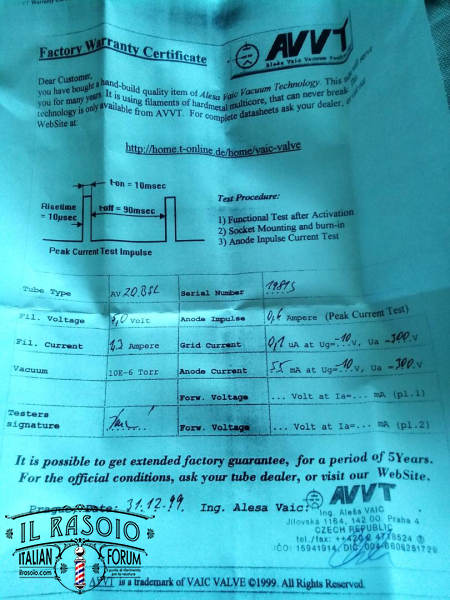 AVVT
Alesa Vaic Vacuum
Factory Warranty Certificate
Dear Customer,
you have bought a hand-build quality item of Alesa Vaic Vacuum Technology. This
you for many years. It is using filaments of hardmetal multicore, that can never break.
technology is only available from AVVT. For complete datasheets ask your dealer,
WebSite at:
http://home.t-online.de/home/vaic-valve
t-on = 10msec
Risetime
= 10µsec
t-off = 90msec
Peak Current Test Impulse
Test Procedure:
1) Functional Test after Activation
2) Socket Mounting and burn-in
3) Anode Inpulse Current Test
Tube Type AV 20 BSL Serial Number
Fil. Voltage 5,0 Volt Anode Impulse 0,6 Ampere (Peak Current Test)
Fil. Current Ampere Grid Current 0,1 uA at Ug=-10.V, Ua =300.V
Vacuum 10E-6 Torr Anode Current 55 mA at Ug=-10.V, Ua =300.V
Forw. Voltage ... Volt at Ia=... mA (pl.1)
Testers
signature
Forw. Voltage ... Volt at Ia=... mA (pl.2)
It is possible to get extended factory guarantee, for a period of 5Years.
For the official conditions, ask your tube dealer, or visit our WebSite.
Prague/Date: 31.12.99 Ing. Alesa Vaic:
AVVT
Ing. Aleša VAIC
Jílovská 1164, 142 00 Praha 4
CZECH REPUBLIC
tel./fax.: ++420 2 4718524
IČO: 15941914, DIČ: 004-6606251729
AVVT is a trademark of VAIC VALVE ©1999. All Rights Reserved.
IL RASOIO
ITALIAN FORUM
ilrasoio.com